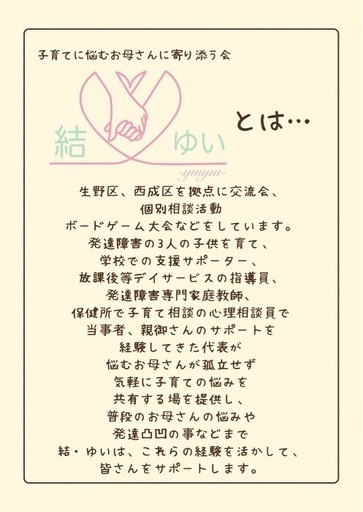 子育てに悩むお母さんに寄り添う会
結 ゆい とは…
-yuiyui-
生野区、西成区を拠点に交流会、
個別相談活動
ボードゲーム大会などをしています。
発達障害の3人の子供を育て、
学校での支援サポーター、
放課後等デイサービスの指導員、
発達障害専門家庭教師、
保健所で子育て相談の心理相談員で
当事者、親御さんのサポートを
経験してきた代表が
悩むお母さんが孤立せず
気軽に子育ての悩みを
共有する場を提供し、
普段のお母さんの悩みや
発達凸凹の事などまで
結・ゆいは、これらの経験を活かして、
皆さんをサポートします。